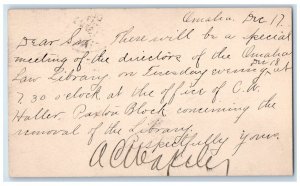 Omaha, Dec 17
Dear Sir: There will be a special
meeting of the directors of the Omaha
Law Library on Tuesday evening at
Dec 18
7 30 o'clock at the office of C. W.
Haller, Paxton Block concerning the
removal of the Library.
Respectfully Yours,
A C Wakeley